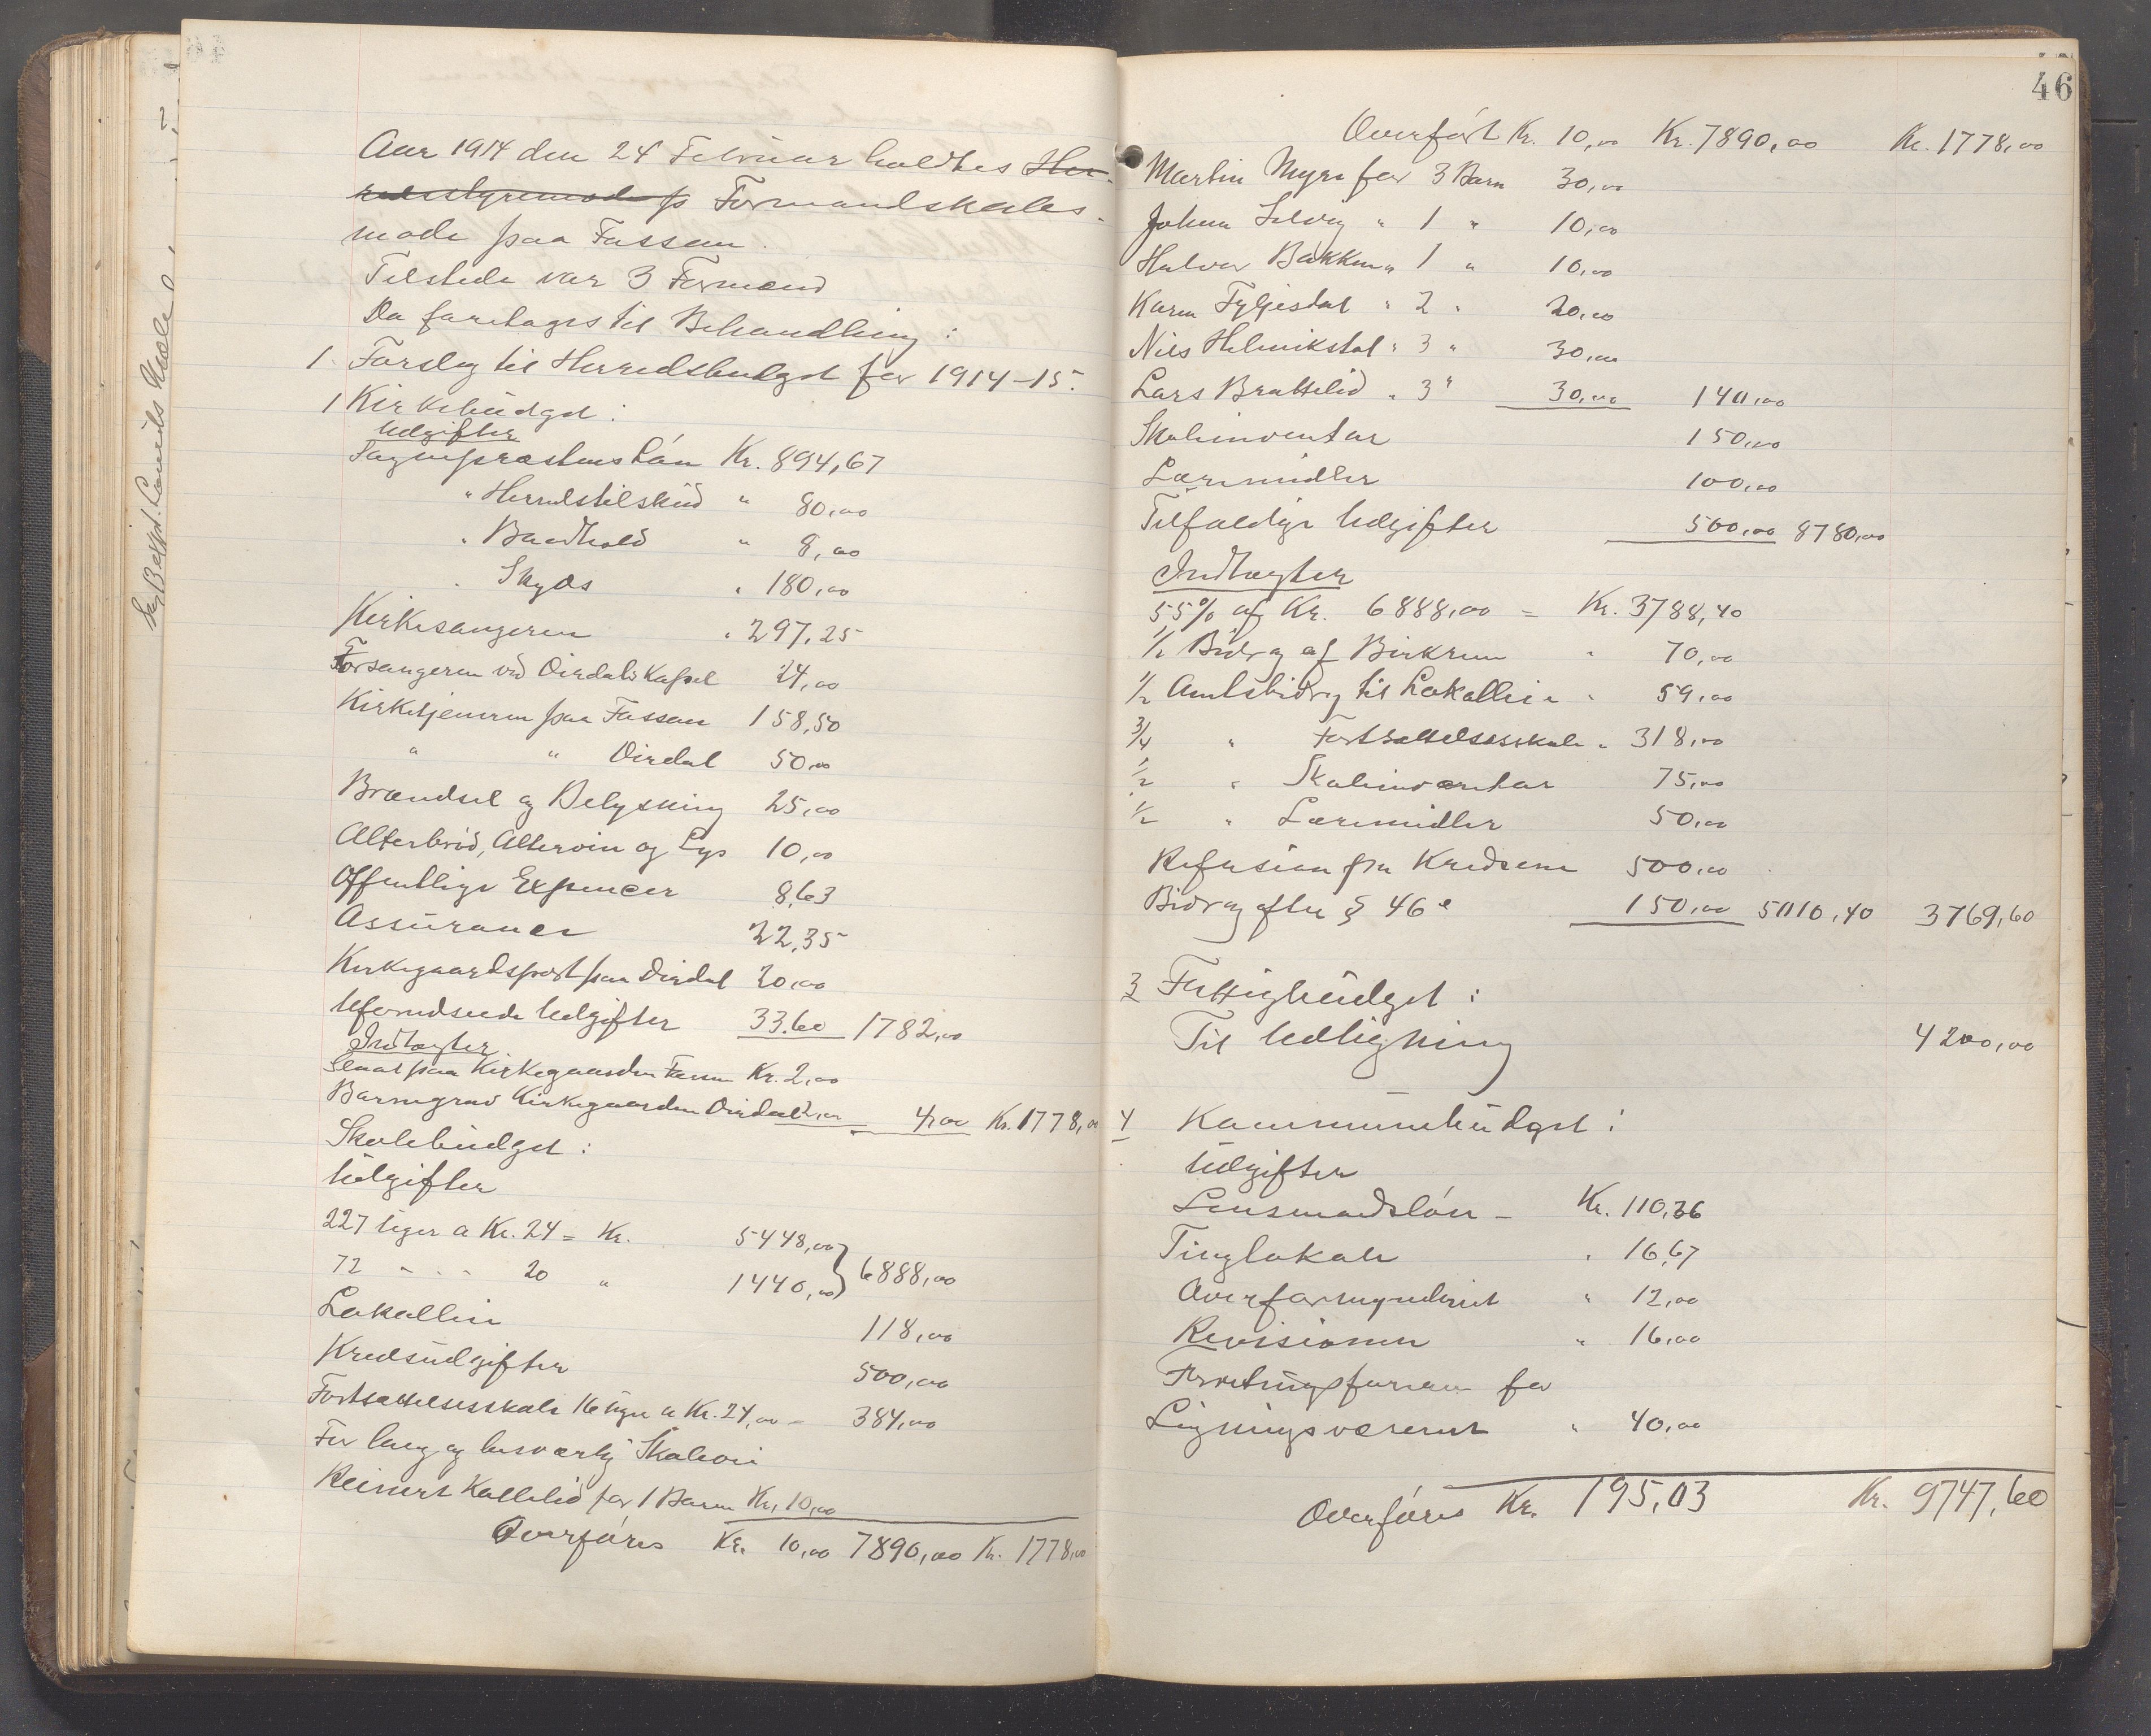 Aar 1914 den 24 Februar holdtes Her-
redsstyremøde p Formandskabs-
møde paa Fossan.
Tilstede var 3 Formænd
Da foretages til Behandling:
1. Forslag til Herredsbudget for 1914-15.
1 Kirkebudget:
Udgifter
Sognepræstens Løn Kr. 894,67
" Herredstilskud " 80,00
" Baadhold " 8,00
" Skyds " 180,00
Kirkesangeren " 297,25
Forsangeren ved Dirdals Kapel 24,00
Kirketjeneren paa Fossan 158,50
" " Dirdal 50,00
Brændsel og Belysning 25,00
Alterbrød, Altervin og Lys 10,00
Offentlige Expencer 8,63
Assurance 22,35
Kirkegaardsport paa Dirdal 20,00
Uforudseede Udgifter 33.60 1782,00
Indtægter
Slaat paa Kirkegaarden Fossan Kr. 2,00
Barnegrav Kirkegaarden Dirdal 2,00 4,00 Kr. 1778,00
Skolebudget:
Udgifter
227 Uger a Kr. 24 = Kr. 5448,00
72 " " " 20 " 1440,00 } 6888,00
Lokalleie 118,00
Kredsudgifter 500,00
Fortsættelsesskole 16 Uger a Kr. 24,00 = 384,00
For lang og besværlig Skolevei
Reinert Kallelid for 1 Barn Kr. 10,00
Overføres Kr. 10,00 7890,00 Kr. 1778,00
46
Overført Kr. 10,00 Kr. 7890,00 Kr. 1778,00
Martin Myre for 3 Barn 30,00
Johan Selvig " 1 " 10,00
Halvor Bakken " 1 " 10,00
Karen Fylgjesdal " 2 " 20,00
Nils Helmikstøl " 3 " 30,00
Lars Brattelid " 3 " 30,00 140,00
Skoleinventar 150,00
Læremidler 100,00
Tilfældige Udgifter 500,00 8780,00
Indtægter
55% af Kr. 6888,00 = Kr. 3788,40
1/2 Bidrag af Birkrem " 70,00
1/2 Amtsbidrag til Lokalleie " 59,00
3/4 " Fortsættelsesskole " 318,00
1/2 " Skoleinventar 75,00
1/2 " Læremidler 50,00
Refusion fra Kredsene 500,00
Bidrag efter § 46 e 150,00 5010,40 3769,60
3 Fattigbudget:
Til Udligning 4200,00
4 Kommunebudget:
Udgifter
Lensmandsløn - Kr. 110,36
Tinglokale " 16,67
Overformynderiet " 12,00
Revisionen " 16,00
Forretningsføreren for
Ligningsvæsenet " 40,00
Overføres Kr. 195,03 Kr. 9747,60